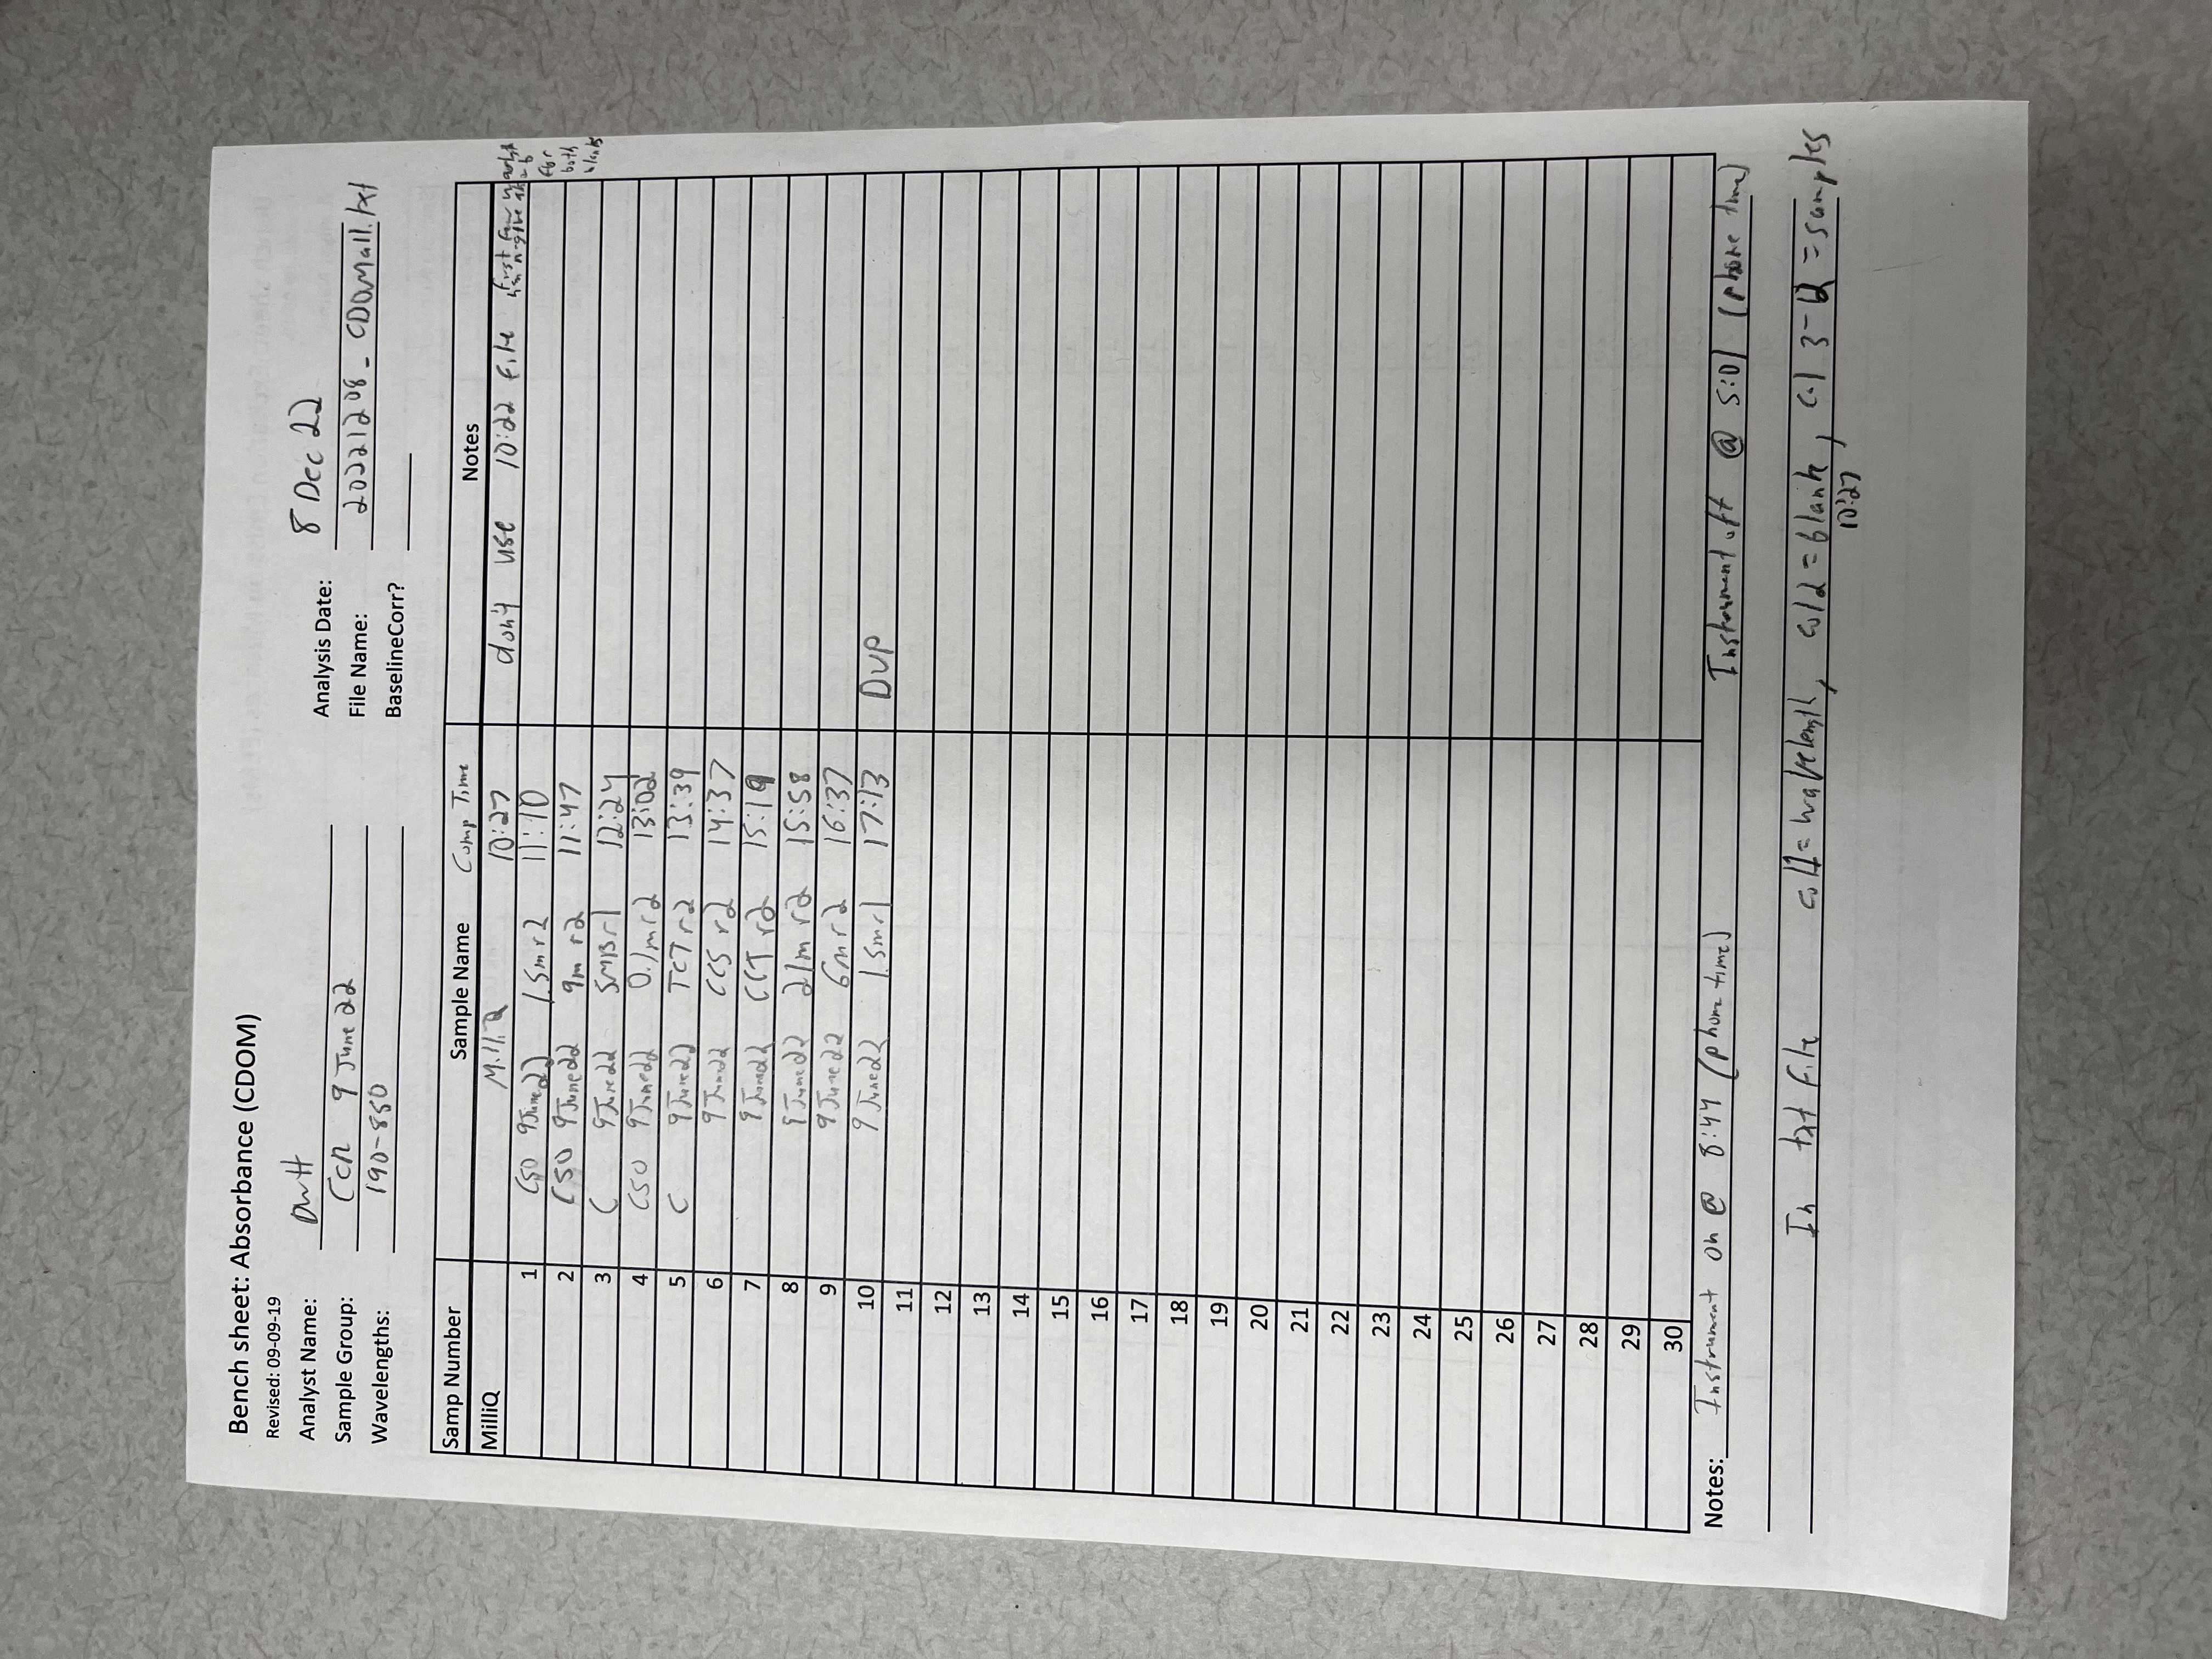 Bench sheet: Absorbance (CDOM)
Revised: 09-09-19
Analyst Name: DWH
Analysis Date: 8 Dec 22
Sample Group: CCR 9 June 22
File Name: 20221208_CDOMall.txt
Wavelengths: 190-850
BaselineCorr?
Samp Number Sample Name Comp Time Notes
MilliQ MilliQ 10:27 don't use 10:22 file first few
for
both
blanks
1 C50 9June22 1.5m r2 11:10
2 C50 9June22 9m r2 11:47
3 C 9June22 SMB r1 12:24
4 C50 9June22 0.1m r2 13:02
5 C 9June22 TCT r2 13:39
6 9June22 CCS r2 14:37
7 9June22 CCT r2 15:19
8 9June22 21m r2 15:58
9 9June22 6m r2 16:37
10 9June22 1.5m r1 17:13 DUP
11
12
13
14
15
16
17
18
19
20
21
22
23
24
25
26
27
28
29
30
Notes: Instrument on @ 8:44 (phone time) Instrument off @ 5:01 (phone time)
In txt file col1 = wavelength, col2 = blank, col 3-12 = samples
10:27